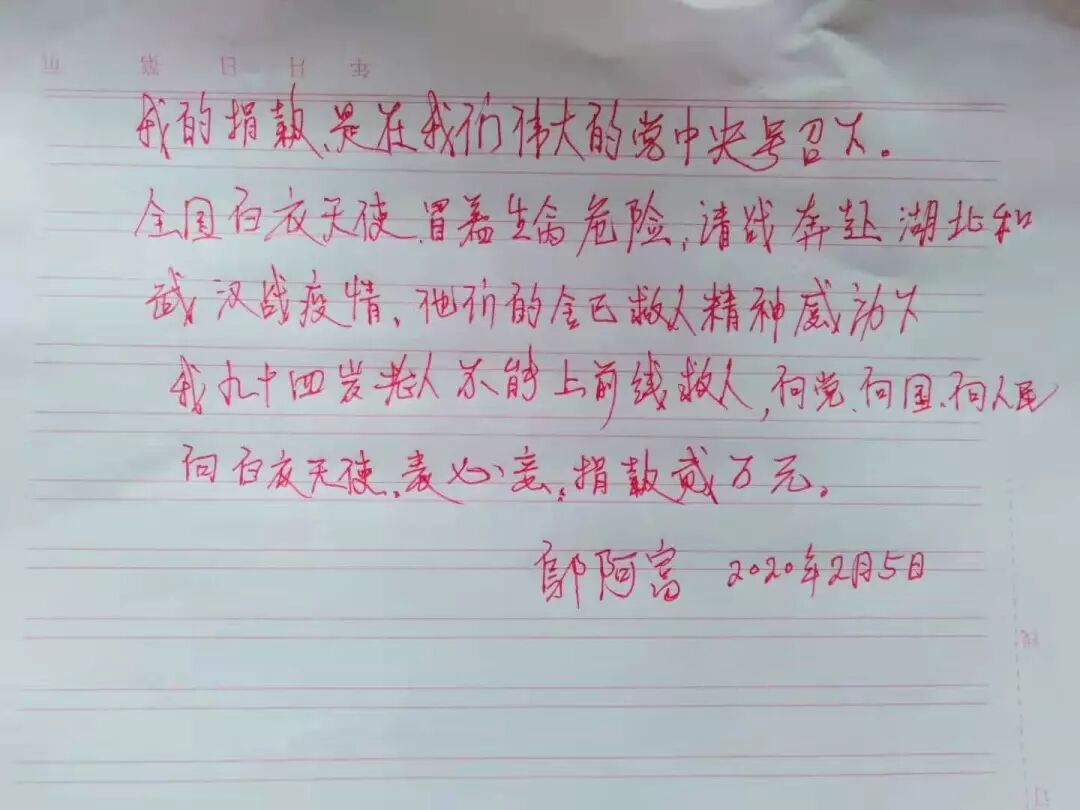 我的捐款、是在我们伟大的党中央号召下。
全国白衣天使、冒着生命危险,请战奔赴湖北和
武汉战疫情、他们的舍已救人精神感动人
我九十四岁老人不能上前线救人,向党、向国、向人民
向白衣天使、表心意,捐款贰万元。
鄔阿富 2020年2月5日